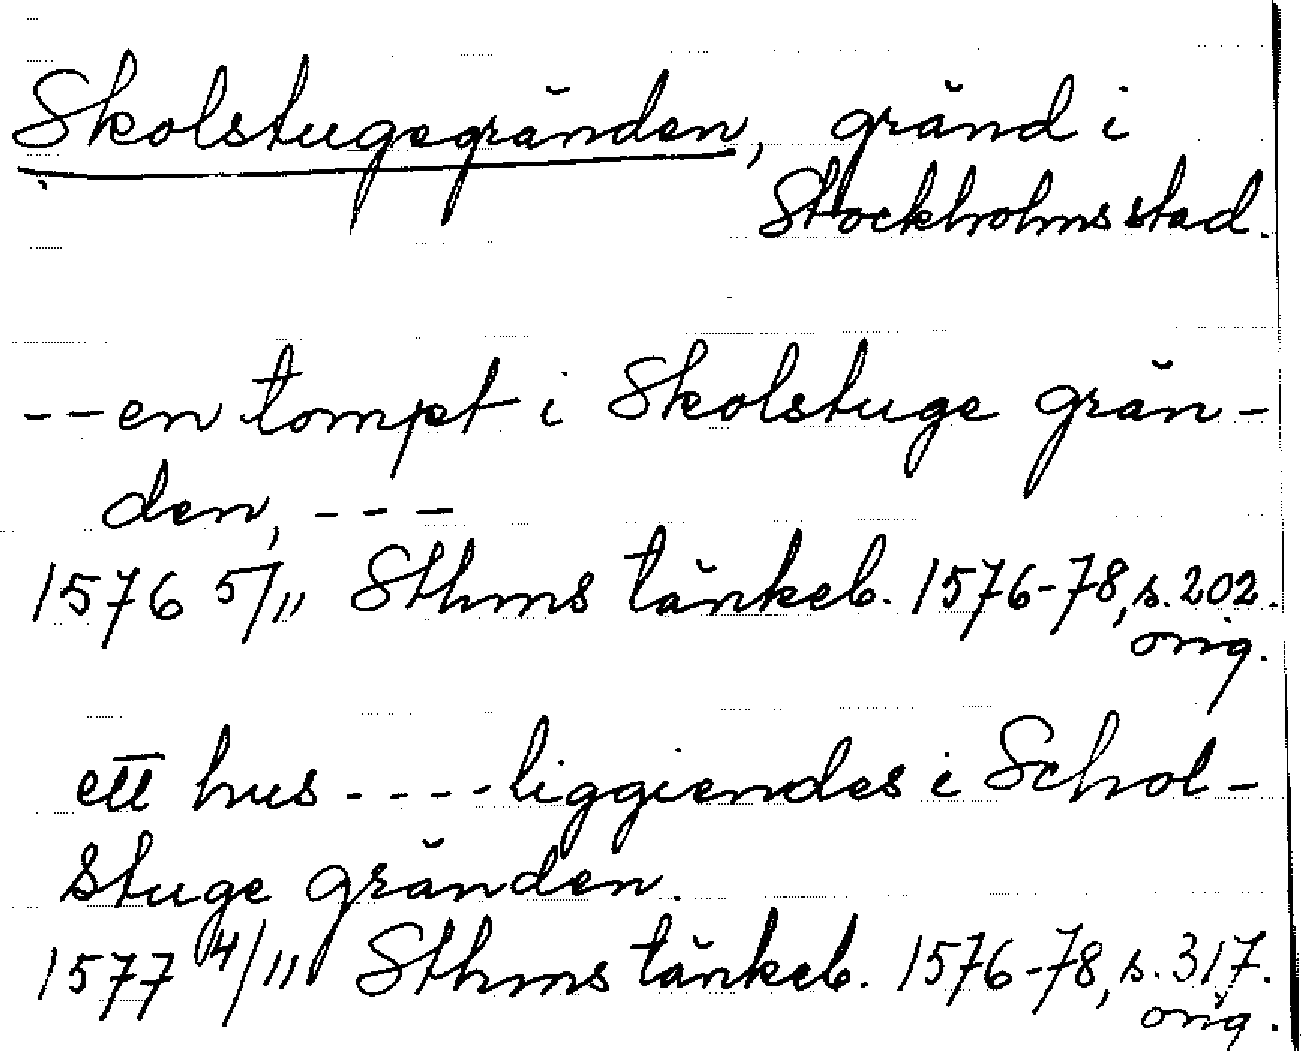 Skolstugegränden, gränd i
Stockholms stad.
--en tompt i Skolstuge grän-
den, ---
1576 5/11 Sthms tänkeb. 1576-78, s. 202.
orig.
ett hus ---- liggiendes i Schol-
stuge gränden.
1577 4/11 Sthms tänkeb. 1576-78, s. 317.
orig.